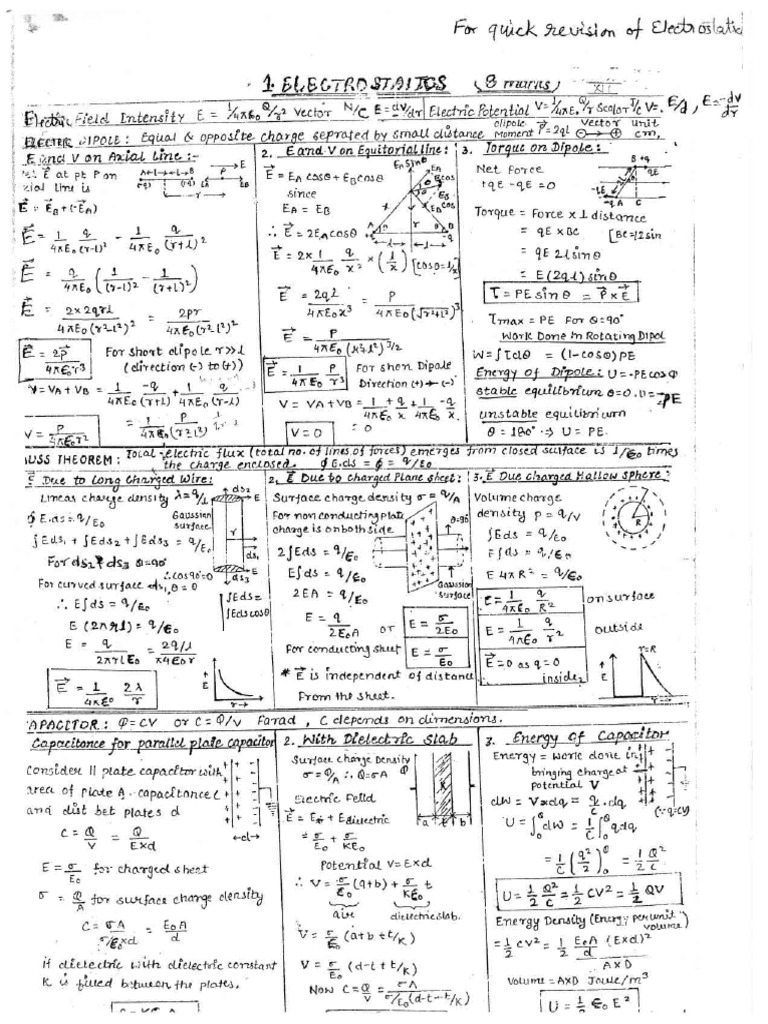 For quick revision of Electrostatic
1. ELECTROSTATICS (8 marks) XII
Electric Field Intensity E = 1/4πε₀ Q/r² vector N/C E = dv/dr Electric Potential V = 1/4πε₀ Q/r Scalar J/C V = E/d, E = -dv/dr
ELECTRIC DIPOLE: Equal & opposite charge seprated by small distance dipole Moment P⃗ = 2ql vector unit cm,
E and V on Axial Line:-
Let E⃗ at pt P on
axial line is
E⃗ = E⃗B + (-E⃗A)
E⃗ = 1/4πε₀ q/(r-l)² - 1/4πε₀ q/(r+l)²
E⃗ = q/4πε₀ (1/(r-l)² - 1/(r+l)²)
E⃗ = 2×2qrl/4πε₀(r²-l²)² = 2pr/4πε₀(r²-l²)²
E⃗ = 2p⃗/4πε₀r³ For short dipole r>>l
(direction (-) to (+))
V = VA + VB = 1/4πε₀ -q/(r+l) + 1/4πε₀ q/(r-l)
V = P/4πε₀r² = 1/4πε₀ P/(r²-l²)
2. E and V on Equitorial line:
E⃗ = EA cosθ + EB cosθ
since
EA = EB
∴ E⃗ = 2EA cosθ
E⃗ = 2× 1/4πε₀ q/x² × (l/x) [cosθ = l/x]
E⃗ = 2ql/4πε₀x³ = P/4πε₀(√r²+l²)³
E⃗ = P/4πε₀(r²+l²)3/2
E⃗ = 1/4πε₀ P/r³ For short Dipole
Direction (+) → (-)
V = VA + VB = 1/4πε₀ +q/x + 1/4πε₀ -q/x
V = 0 = 0
3. Torque on Dipole:
Net Force
+qE - qE = 0
Torque = Force × ⊥ distance
= qE × BC [BC = 2l sin
= qE 2l sinθ
= E(2ql) sinθ
τ = PE sinθ = P⃗ × E⃗
τmax = PE For θ = 90°
Work Done in Rotating Dipol
W = ∫τdθ = (1-cosθ) PE
Energy of Dipole: U = -PE cosθ
stable equilibrium θ = 0. U = -PE
unstable equilibrium
θ = 180° → U = PE.
USS THEOREM: Total electric flux (total no. of lines of forces) emerges from closed surface is 1/ε₀ times
the charge enclosed. ∮E.ds = ϕ = q/ε₀
E Due to Long Charged Wire:
Linear charge density λ = q/l
∮E.ds = q/ε₀
Gaussian surface
∫Eds₁ + ∫Eds₂ + ∫Eds₃ = q/ε₀
For ds₂ & ds₃ θ=90°
∴ cos90°=0
For curved surface ds₁, θ = 0
∴ E∫ds = q/ε₀
∫Eds = ∫Eds cosθ
E (2πrl) = q/ε₀
E = q/2πrlε₀ = 2q/l/π4ε₀r
E⃗ = 1/4πε₀ 2λ/r
2. E⃗ Due to charged Plane sheet:
Surface charge density σ = q/A
For non conducting plate
charge is on both side
θ=90°
2∫Eds = q/ε₀
E∫ds = q/ε₀
Gaussian surface
2EA = q/ε₀
E = q/2ε₀A or E = σ/2ε₀
For conducting sheet E = σ/ε₀
* E⃗ is independent of distance
From the sheet.
3. E Due charged Hallow sphere:
Volume charge
density ρ = q/V
∫Eds = q/ε₀
E∫ds = q/ε₀
E 4πR² = q/ε₀
E = 1/4πε₀ q/R² on surface
E = 1/4πε₀ q/r² outside
E⃗ = 0 as q = 0 inside
r=R
APACITOR: Q = CV or C = Q/V Farad, C depends on dimensions.
Capacitance for parallel plate capacitor
Consider || plate capacitor with
area of plate A. capacitance C
and dist bet plates d
C = Q/V = Q/E×d
E = σ/ε₀ for charged sheet
σ = Q/A for surface charge density
C = σA/σ/ε₀×d = ε₀A/d
if dielectric with dielectric constant
K is filled between the plates.
2. With Dielectric Slab
Surface charge Density
σ = Q/A ∴ Q = σA
Electric Feild
E⃗ = Eair + Edielectric
= σ/ε₀ + σ/Kε₀
Potential V = E×d
∴ V = σ/ε₀ (a+b) + σ/Kε₀ t
air dielectric slab.
V = σ/ε₀ (a+b+t/K)
V = σ/ε₀ (d-t+t/K)
Now C = Q/V = σA/σ/ε₀(d-t-t/K)
3. Energy of Capacitor
Energy = work done in
bringing charge at
potential V
dW = V×dq = q/C . dq
(∵ q=CV)
U = ∫₀Q dW = 1/C ∫₀Q q dq
= 1/C (q²/2)₀Q = 1/2 Q²/C
U = 1/2 Q²/C = 1/2 CV² = 1/2 QV
Energy Density (Energy per unit volume)
= 1/2 CV² = 1/2 ε₀A/d (E×d)²/A×D
Volume = A×D Joule/m³
U = 1/2 ε₀ E²